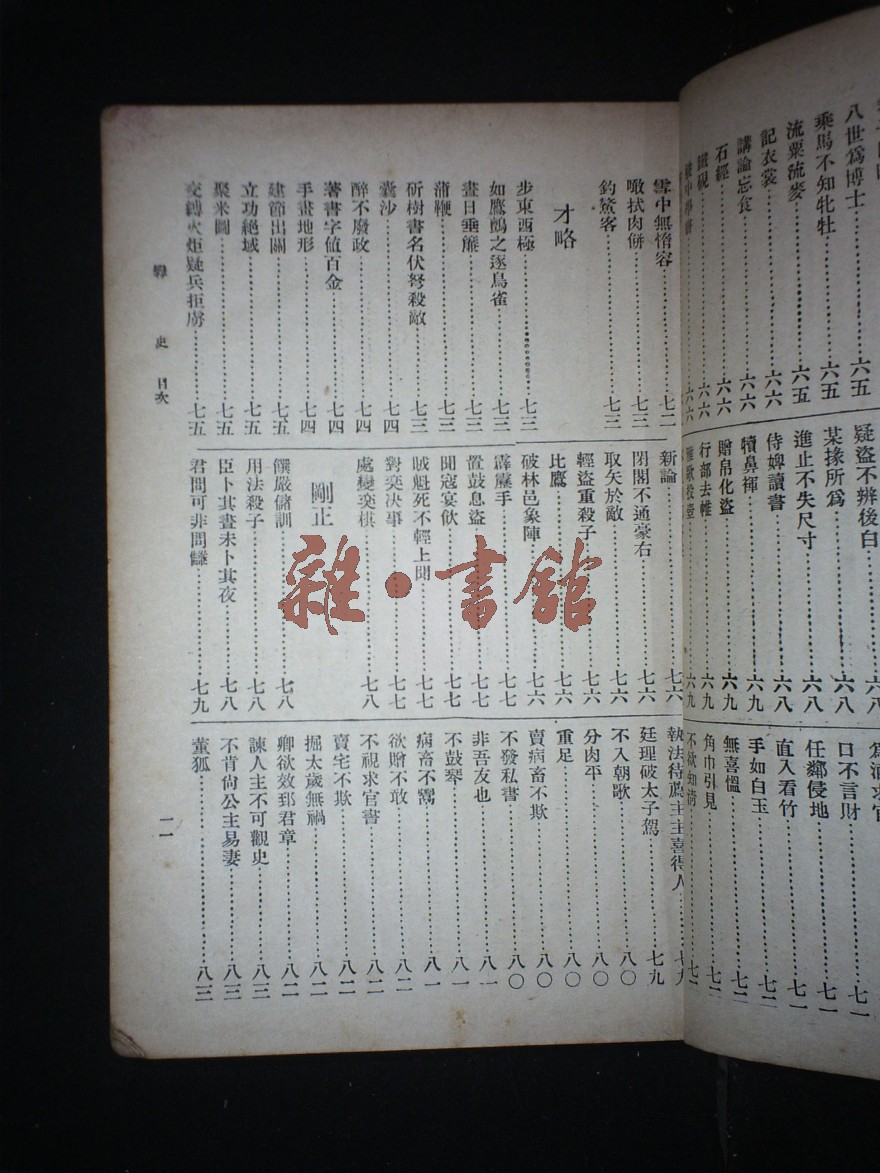 八世爲博士⋯⋯六五
乘馬不知牝牡⋯⋯六五
流粟流麥⋯⋯六五
記衣裳⋯⋯六六
講論忘食⋯⋯六六
石經⋯⋯六六
鐵硯⋯⋯六六
疑盜不辨後白⋯⋯六八
某掾所爲⋯⋯六八
進止不失尺寸⋯⋯六八
侍婢讀書⋯⋯六八
犢鼻褌⋯⋯六九
贈帛化盜⋯⋯六九
行部去帷⋯⋯六九
雅歌投壺⋯⋯六九
口不言財⋯⋯七一
任鄰侵地⋯⋯七一
直入看竹⋯⋯七一
手如白玉⋯⋯七二
無喜慍⋯⋯七二
角巾引見⋯⋯七二
不欲知淸⋯⋯七二
雪中無惰容⋯⋯七二
噉拭肉餠⋯⋯七三
釣鰲客⋯⋯七三
才略
步東西極⋯⋯七三
如鷹鸇之逐鳥雀⋯⋯七三
晝日垂簾⋯⋯七三
蒲鞭⋯⋯七三
斫樹書名伏弩殺敵⋯⋯七三
囊沙⋯⋯七四
醉不廢政⋯⋯七四
著書字值百金⋯⋯七四
手畫地形⋯⋯七四
建節出關⋯⋯七五
立功絕域⋯⋯七五
聚米圖⋯⋯七五
交縛火炬疑兵拒虜⋯⋯七五
新論⋯⋯七六
閉閣不通豪右⋯⋯七六
取矢於敵⋯⋯七六
輕盜重殺子⋯⋯七六
比鷹⋯⋯七六
破林邑象陣⋯⋯七六
霹靂手⋯⋯七七
置鼓息盜⋯⋯七七
聞寇宴飮⋯⋯七七
賊魁死不輕上聞⋯⋯七七
對奕決事⋯⋯七七
處變奕棋⋯⋯七八
剛正
饌嚴儲訓⋯⋯七八
用法殺子⋯⋯七八
臣卜其晝未卜其夜⋯⋯七八
君問可非問讎⋯⋯七九
執法待薦主主喜得人⋯⋯七九
廷理破太子駕⋯⋯七九
不入朝歌⋯⋯八〇
分肉平⋯⋯八〇
重足⋯⋯八〇
賣病畜不欺⋯⋯八〇
不發私書⋯⋯八〇
非吾友也⋯⋯八一
不鼓琴⋯⋯八一
病畜不鬻⋯⋯八一
欲贈不敢⋯⋯八二
不視求官書⋯⋯八二
賣宅不欺⋯⋯八二
掘太歲無禍⋯⋯八二
卿欲效郅君章⋯⋯八二
諫人主不可觀史⋯⋯八三
不肯尙公主易妻⋯⋯八三
董狐⋯⋯八三
史 目次
一一
雜·書館